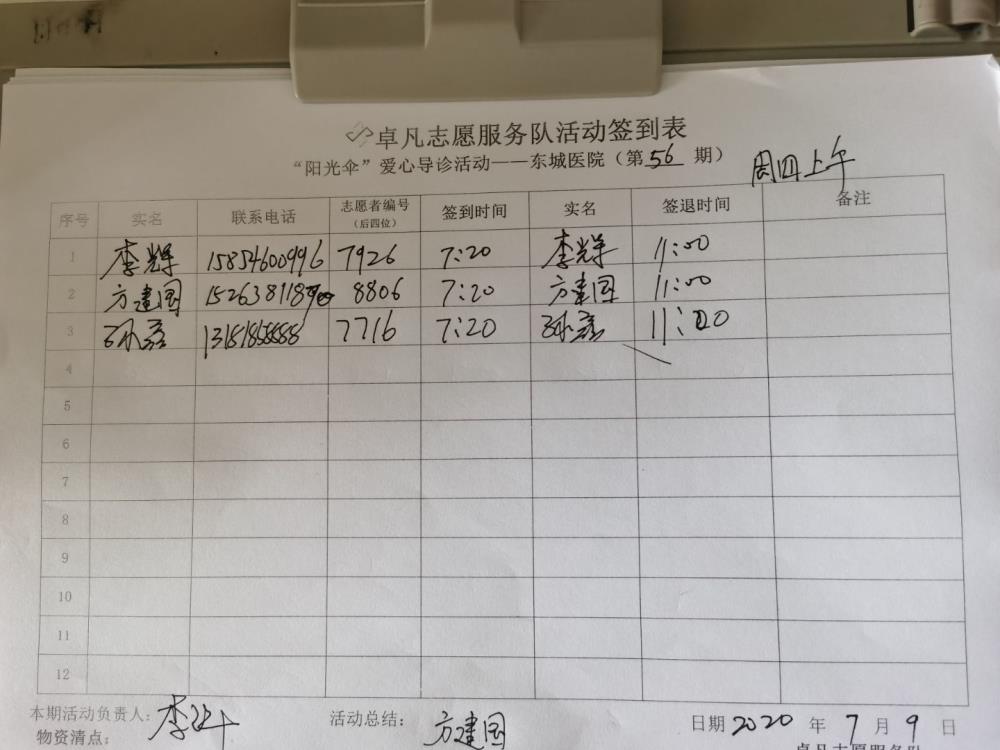 卓凡志愿服务队活动签到表
“阳光伞”爱心导诊活动——东城医院（第 56 期）
周四上午
序号 实名 联系电话 志愿者编号（后四位） 签到时间 实名 签退时间 备注
1 李辉 15854600996 7926 7:20 李辉 11:00
2 方建国 8806 7:20 方建国 11:00
3 孙磊 7716 7:20 孙磊
4
5
6
7
8
9
10
11
12
本期活动负责人： 活动总结： 方建国 日期 2020 年 7 月 9 日
物资清点：
卓凡志愿服务队